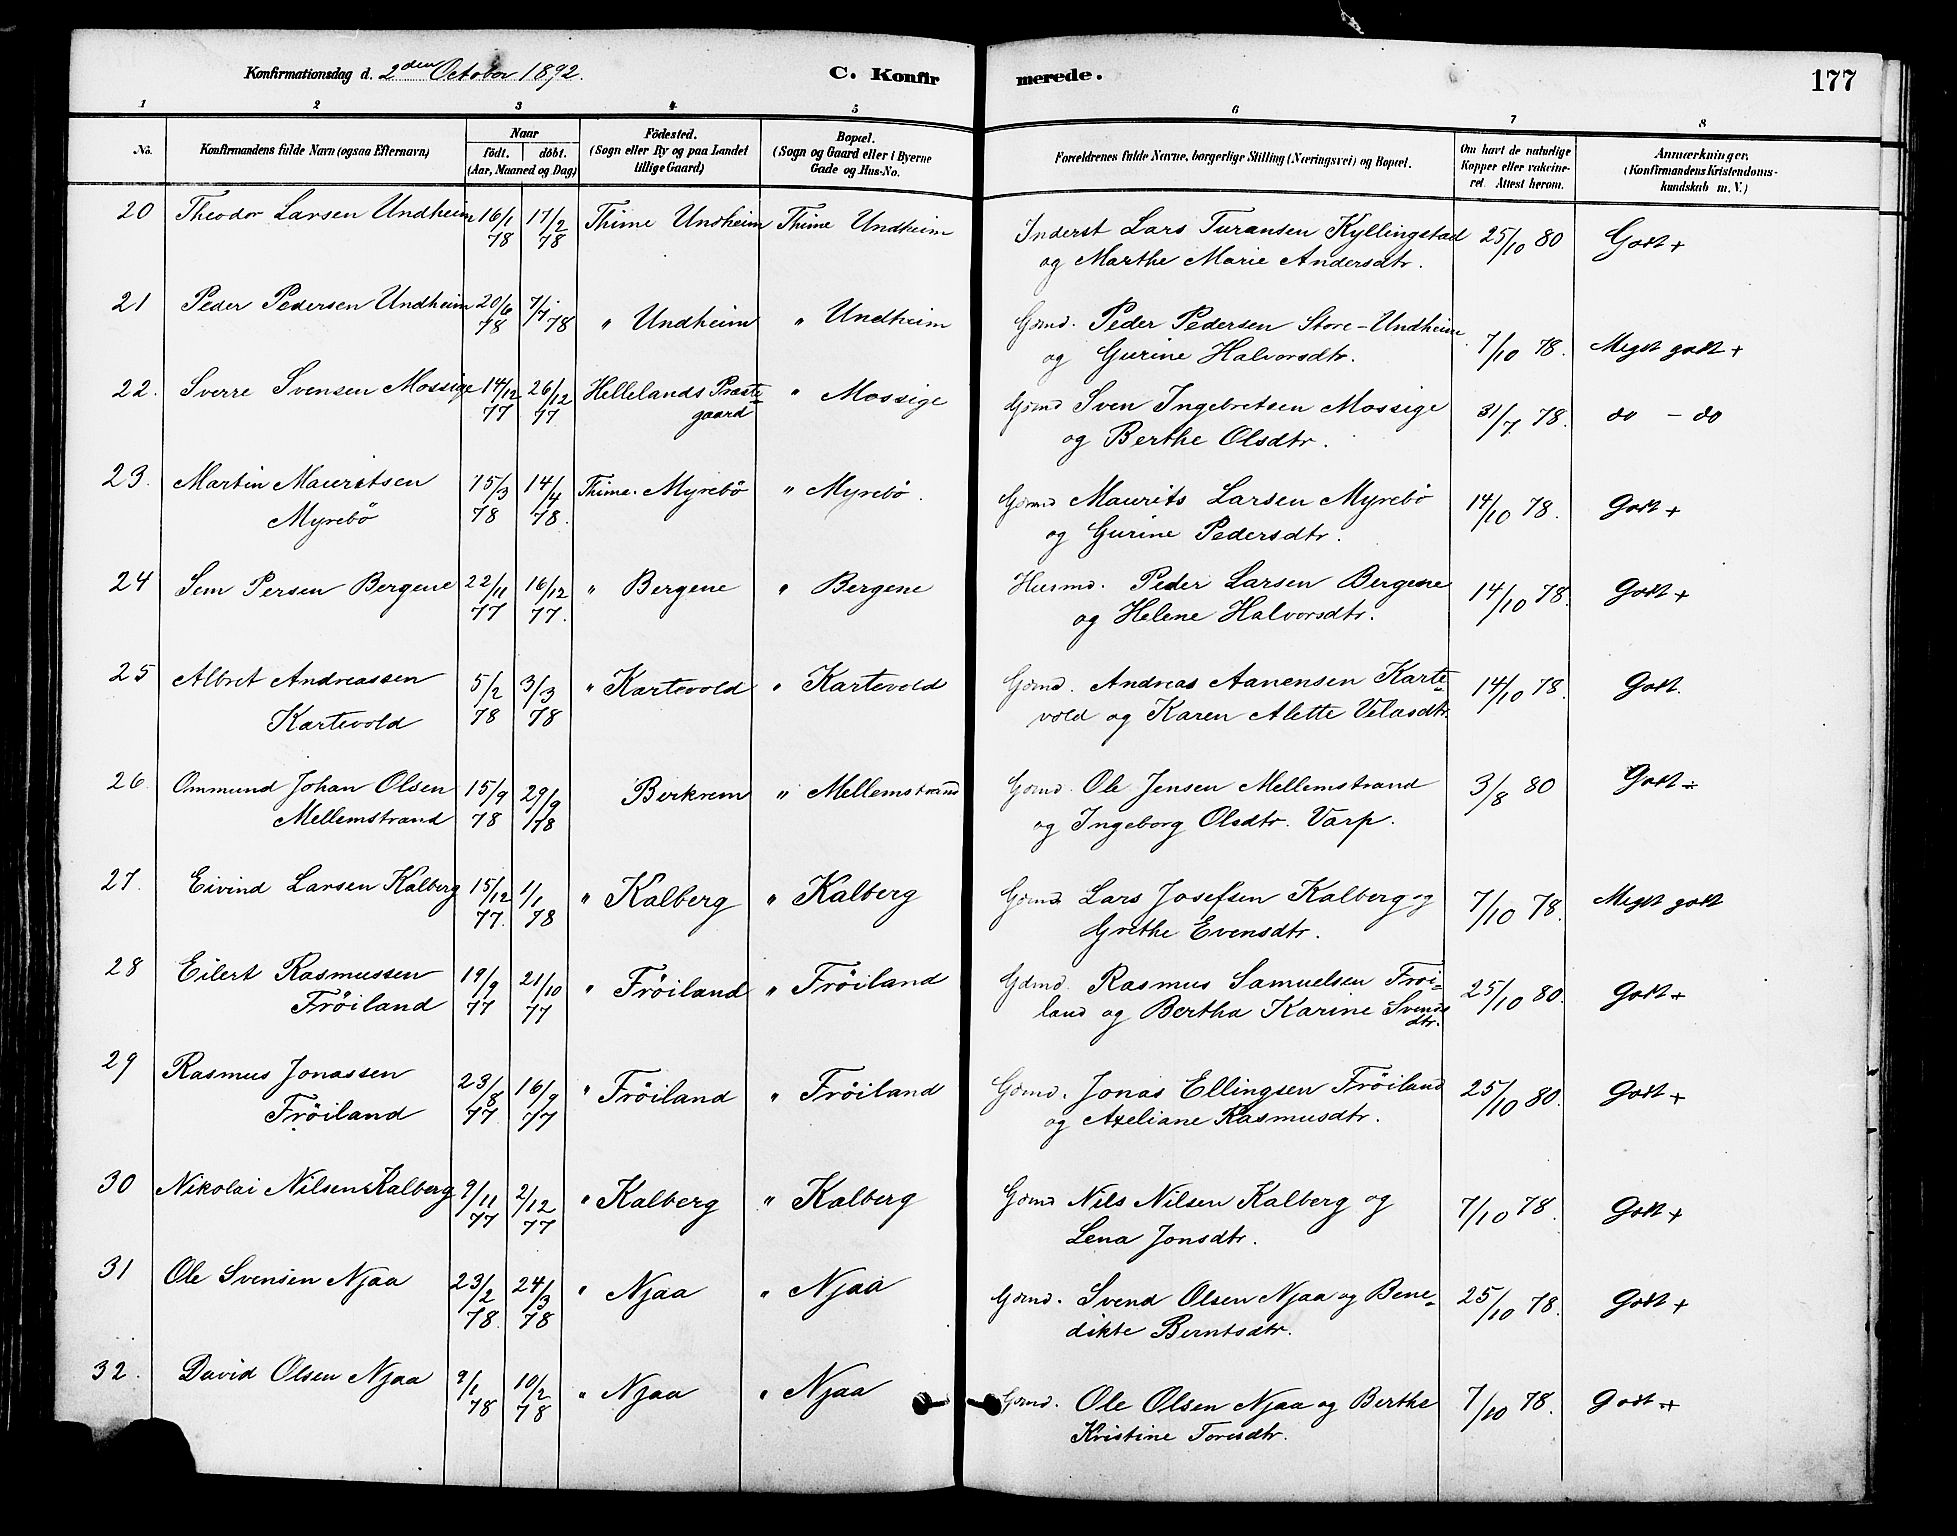 Konfirmationsdag d. 2den October 1892.
C. Konfirmerede.
177
1 2 3 4 5 6 7 8
No.
Konfirmandens fulde Navn (ogsaa Efternavn)
Naar
födt. döbt.
(Aar, Maaned og Dag)
Födested.
(Sogn eller By og paa Landet
tillige Gaard)
Bopæl.
(Sogn og Gaard eller i Byerne
Gade og Hus-No.
Forældrenes fulde Navne, borgerlige Stilling (Næringsvei) og Bopæl.
Om havt de naturlige
Kopper eller vakcine-
ret. Attest herom.
Anmærkninger.
(Konfirmandens Kristendoms-
kundskab m. V.)
20 Theodor Larsen Undheim 16/1 78 17/2 78 Thime Undheim Thime Undheim Inderst Lars Turansen Kyllingstad 25/10 80 Godt +
og Marthe Marie Andersdtr.
21 Peder Pedersen Undheim 20/6 78 7/7 78 " Undheim " Undheim Gdmd. Peder Pedersen Store-Undheim 7/10 78. Meget godt +
og Gurine Halvorsdtr.
22. Sverre Svensen Mossige 14/12 77 26/12 77 Hellelands Præste- " Mossige Gdmd Sven Ingebretsen Mossige 31/7 78. do - do
gaard og Berthe Olsdtr.
23. Martin Mauritsen 15/3 78 14/4 78. Thime. Myrebö " Myrebö. Gdmd Maurits Larsen Myrebö 14/10 78. Godt +
Myrebö og Gurine Pedersdtr.
24 Sem Persen Bergene 22/11 77 16/12 77. " Bergene " Bergene Husmd. Peder Larsen Bergene 14/10 78. Godt +
og Helene Halvorsdtr.
25 Albret Andreassen 5/2 78 3/3 78 " Kartevold " Kartevold Gdmd. Andreas Aanensen Karte- 14/10 78. Godt.
Kartevold vold og Karen Alette Velasdtr.
26. Ommund Johan Olsen 15/9 78 29/9 78 Birkrem " Mellemstrand Gdmd. Ole Jensen Mellemstrand 3/8 80 Godt ÷
Mellemstrand og Ingeborg Olsdtr. Varp.
27. Eivind Larsen Kalberg 15/12 77. 1/1 78 " Kalberg " Kalberg Gdmd. Lars Josefsen Kalberg og 7/10 78. Meget godt
Grethe Evensdtr.
28 Eilert Rasmussen 19/9 77 21/10 77 " Fröiland " Fröiland Gdmd. Rasmus Samuelsen Fröi- 25/10 80. Godt +
Fröiland land og Bertha Karine Svends
dtr.
29 Rasmus Jonassen 23/8 77 16/9 77 " Fröiland " Fröiland Gdmd. Jonas Ellingsen Fröiland 25/10 80. Godt +
Fröiland og Axeliane Rasmusdtr.
30 Nikolai Nilsen Kalberg 9/11 77 2/12 77 " Kalberg " Kalberg Gdmd Nils Nilsen Kalberg og 7/10 78. Godt +
Lena Jonsdtr.
31 Ole Svensen Njaa 23/2 78. 24/3 78 " Njaa " Njaa Gdmd. Svend Olsen Njaa og Bene- 25/10 78. Godt +
dikte Berntsdtr.
32. David Olsen Njaa 9/1 78 10/2 78 " Njaa " Njaa Gdmd. Ole Olsen Njaa og Berthe 7/10 78. Godt +
Kristine Toresdtr.